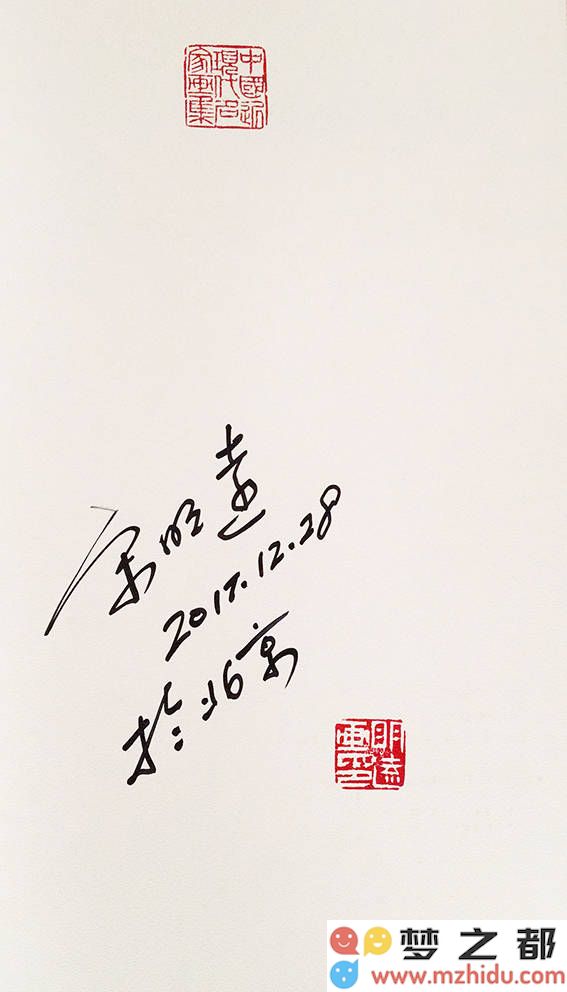 中國近
現代名
家畫集
宋明遠
2017.12.28
於北京
明遠
畫印
梦之都
www.mzhidu.com